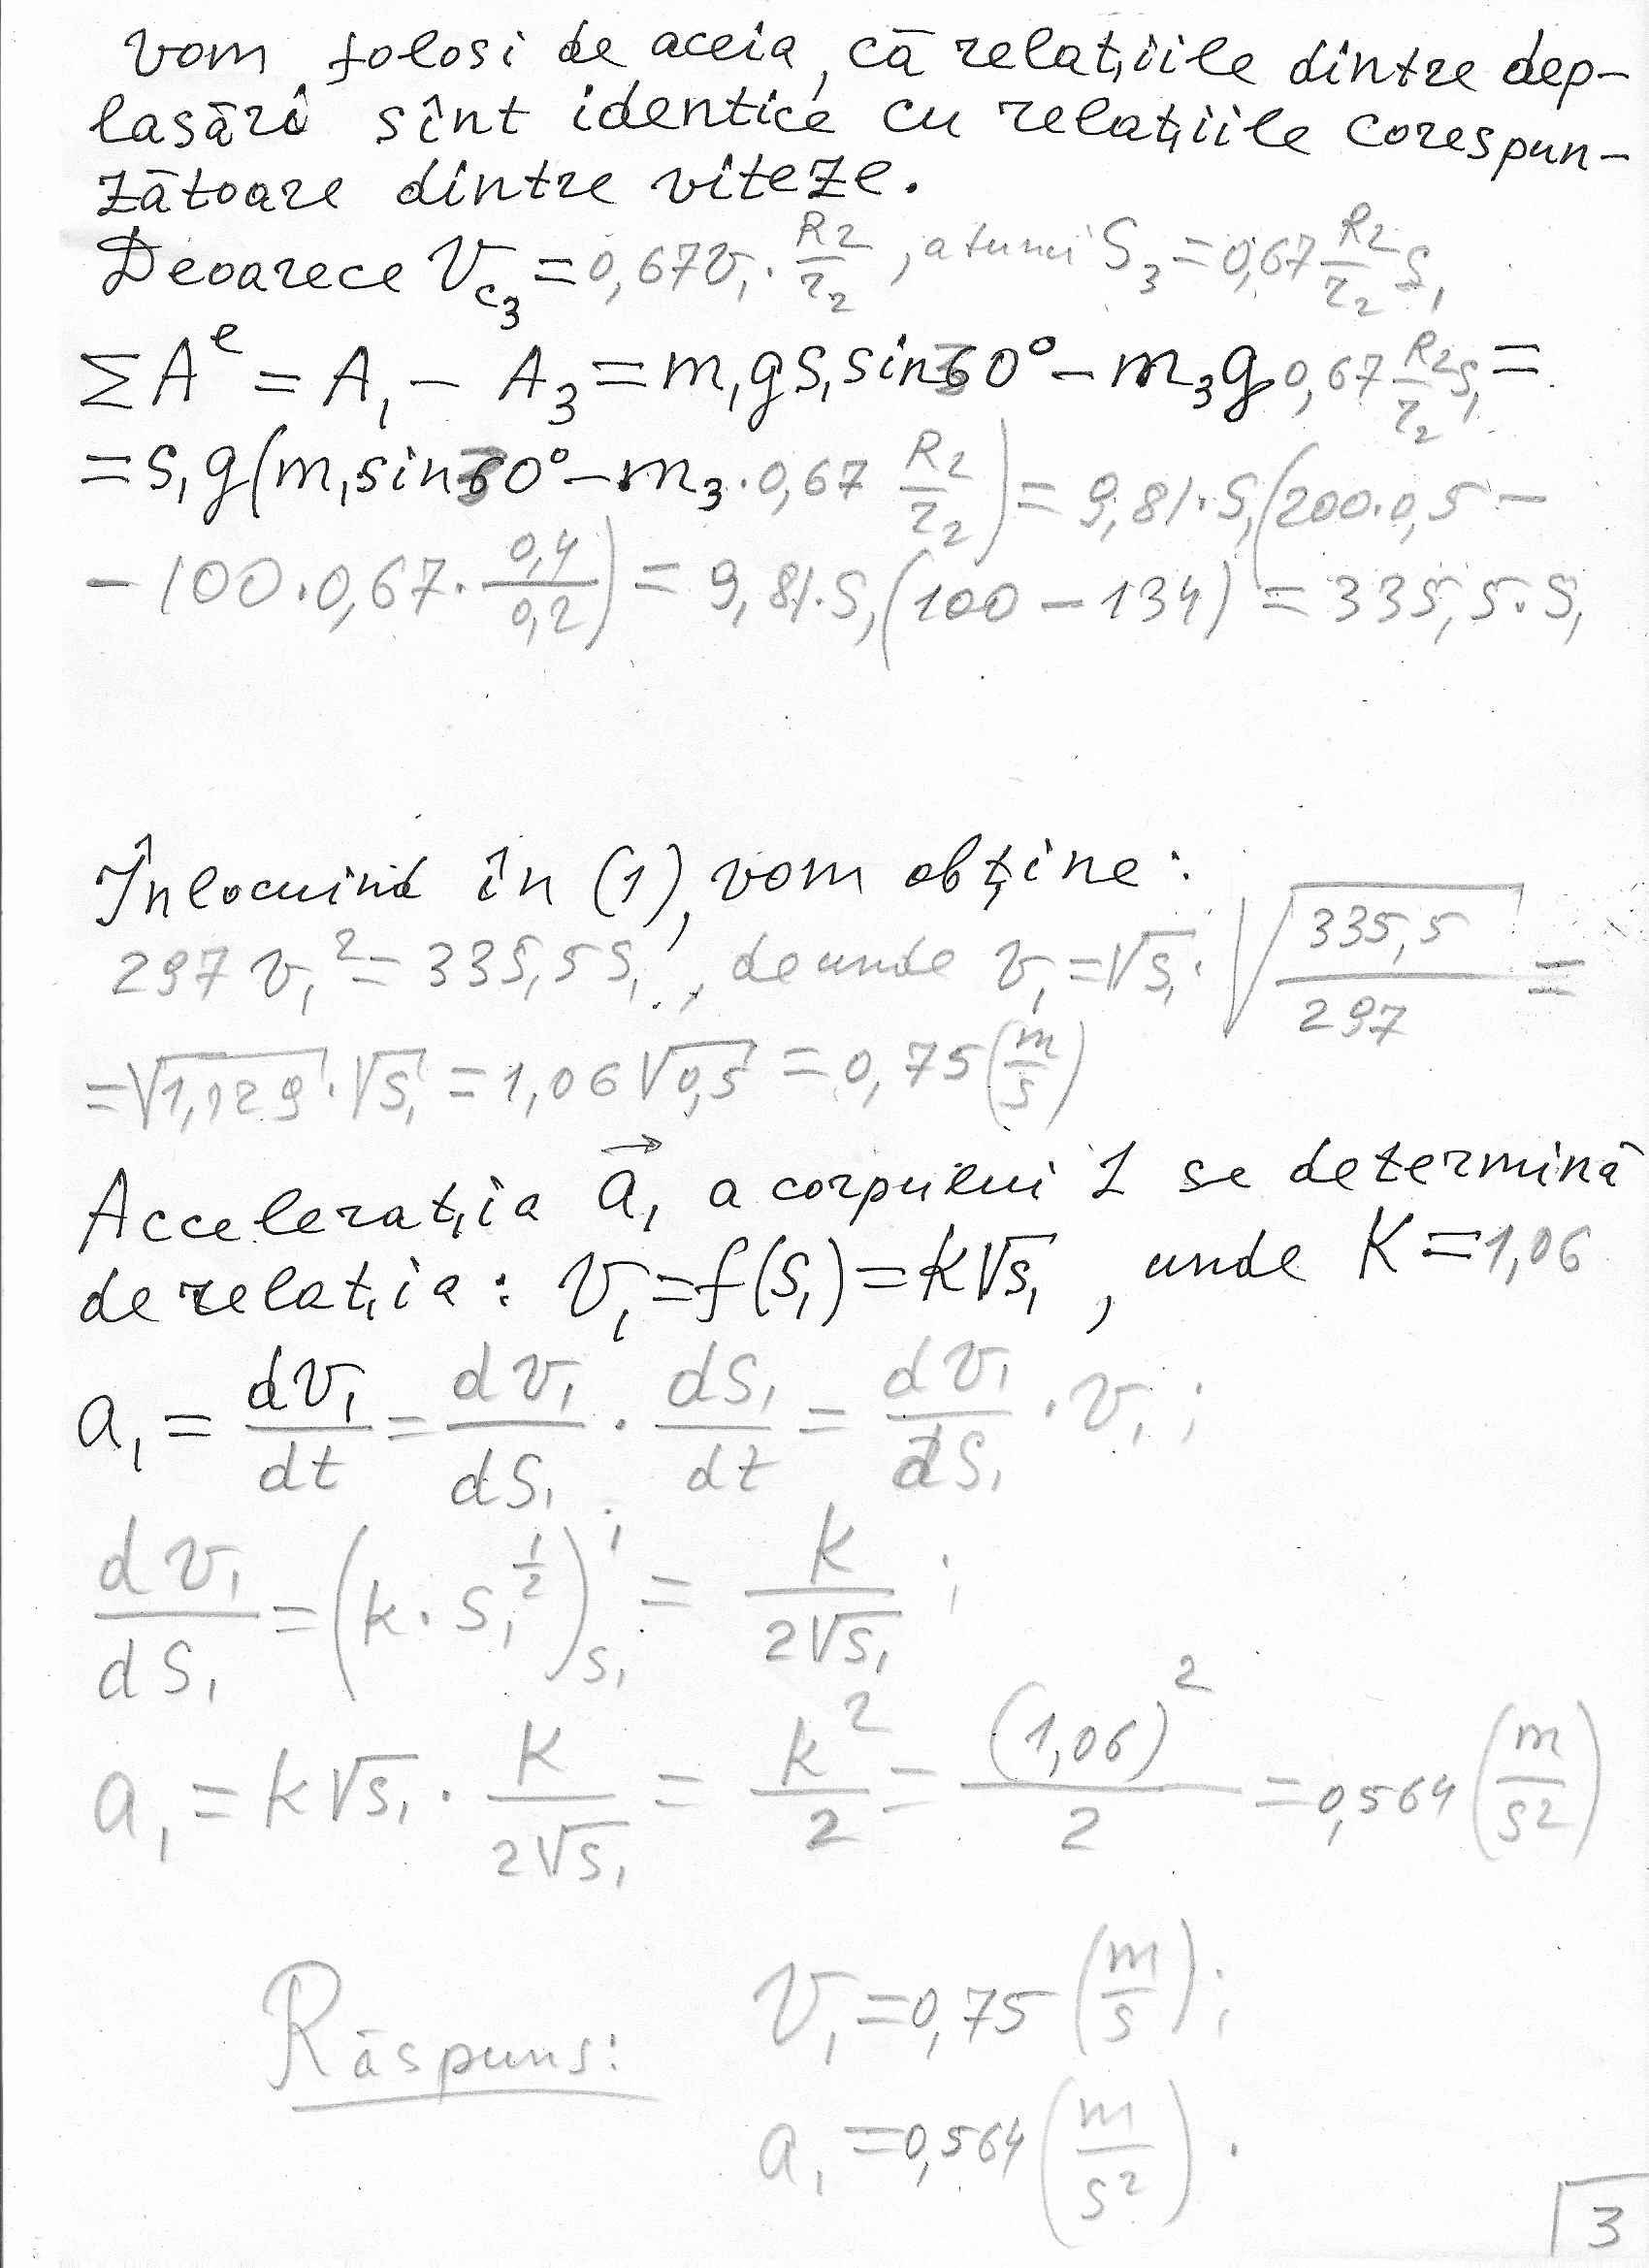 Vom folosi de aceia, că relațiile dintre dep-
lasări sînt identice cu relațiile corespun-
zătoare dintre viteze.
Deoarece V_{c_3} = 0,67 v_1 · R_2/r_2, atunci S_3 = 0,67 R_2/r_2 S_1
ΣA^e = A_1 − A_3 = m_1 g S_1 sin 30° − m_3 g 0,67 R_2/r_2 S_1 =
= S_1 g (m_1 sin 30° − m_3 · 0,67 R_2/r_2) = 9,81 · S_1 (200 · 0,5 −
− 100 · 0,67 · 0,4/0,2) = 9,81 · S_1 (100 − 134) = 335,5 · S_1
Înlocuind în (1), vom obține:
297 v_1^2 = 335,5 S_1, de unde v_1 = √S_1 · √(335,5/297) =
= √1,129 · √S_1 = 1,06 √0,5 = 0,75 (m/s)
Accelerația a⃗_1 a corpului 1 se determină
de relația: v_1 = f(S_1) = k√S_1, unde K = 1,06
a_1 = dv_1/dt = dv_1/dS_1 · dS_1/dt = dv_1/dS_1 · v_1;
dv_1/dS_1 = (k · S_1^{1/2})'_{S_1} = k/(2√S_1);
a_1 = k√S_1 · k/(2√S_1) = k^2/2 = (1,06)^2/2 = 0,564 (m/s^2)
Răspuns: v_1 = 0,75 (m/s);
a_1 = 0,564 (m/s^2).
3